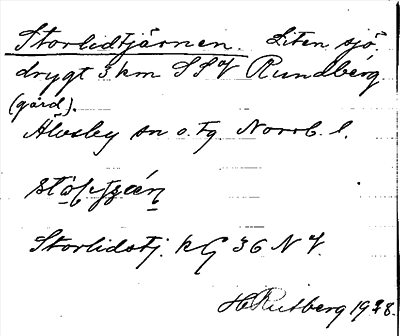 Storlidtjärnen. Liten sjö
drygt 3 km SSV Rundberg
(gård).
Älvsby sn o. tg. Norrb. l.
Storlidstj. kG 36 NV.
H Rutberg 1928.